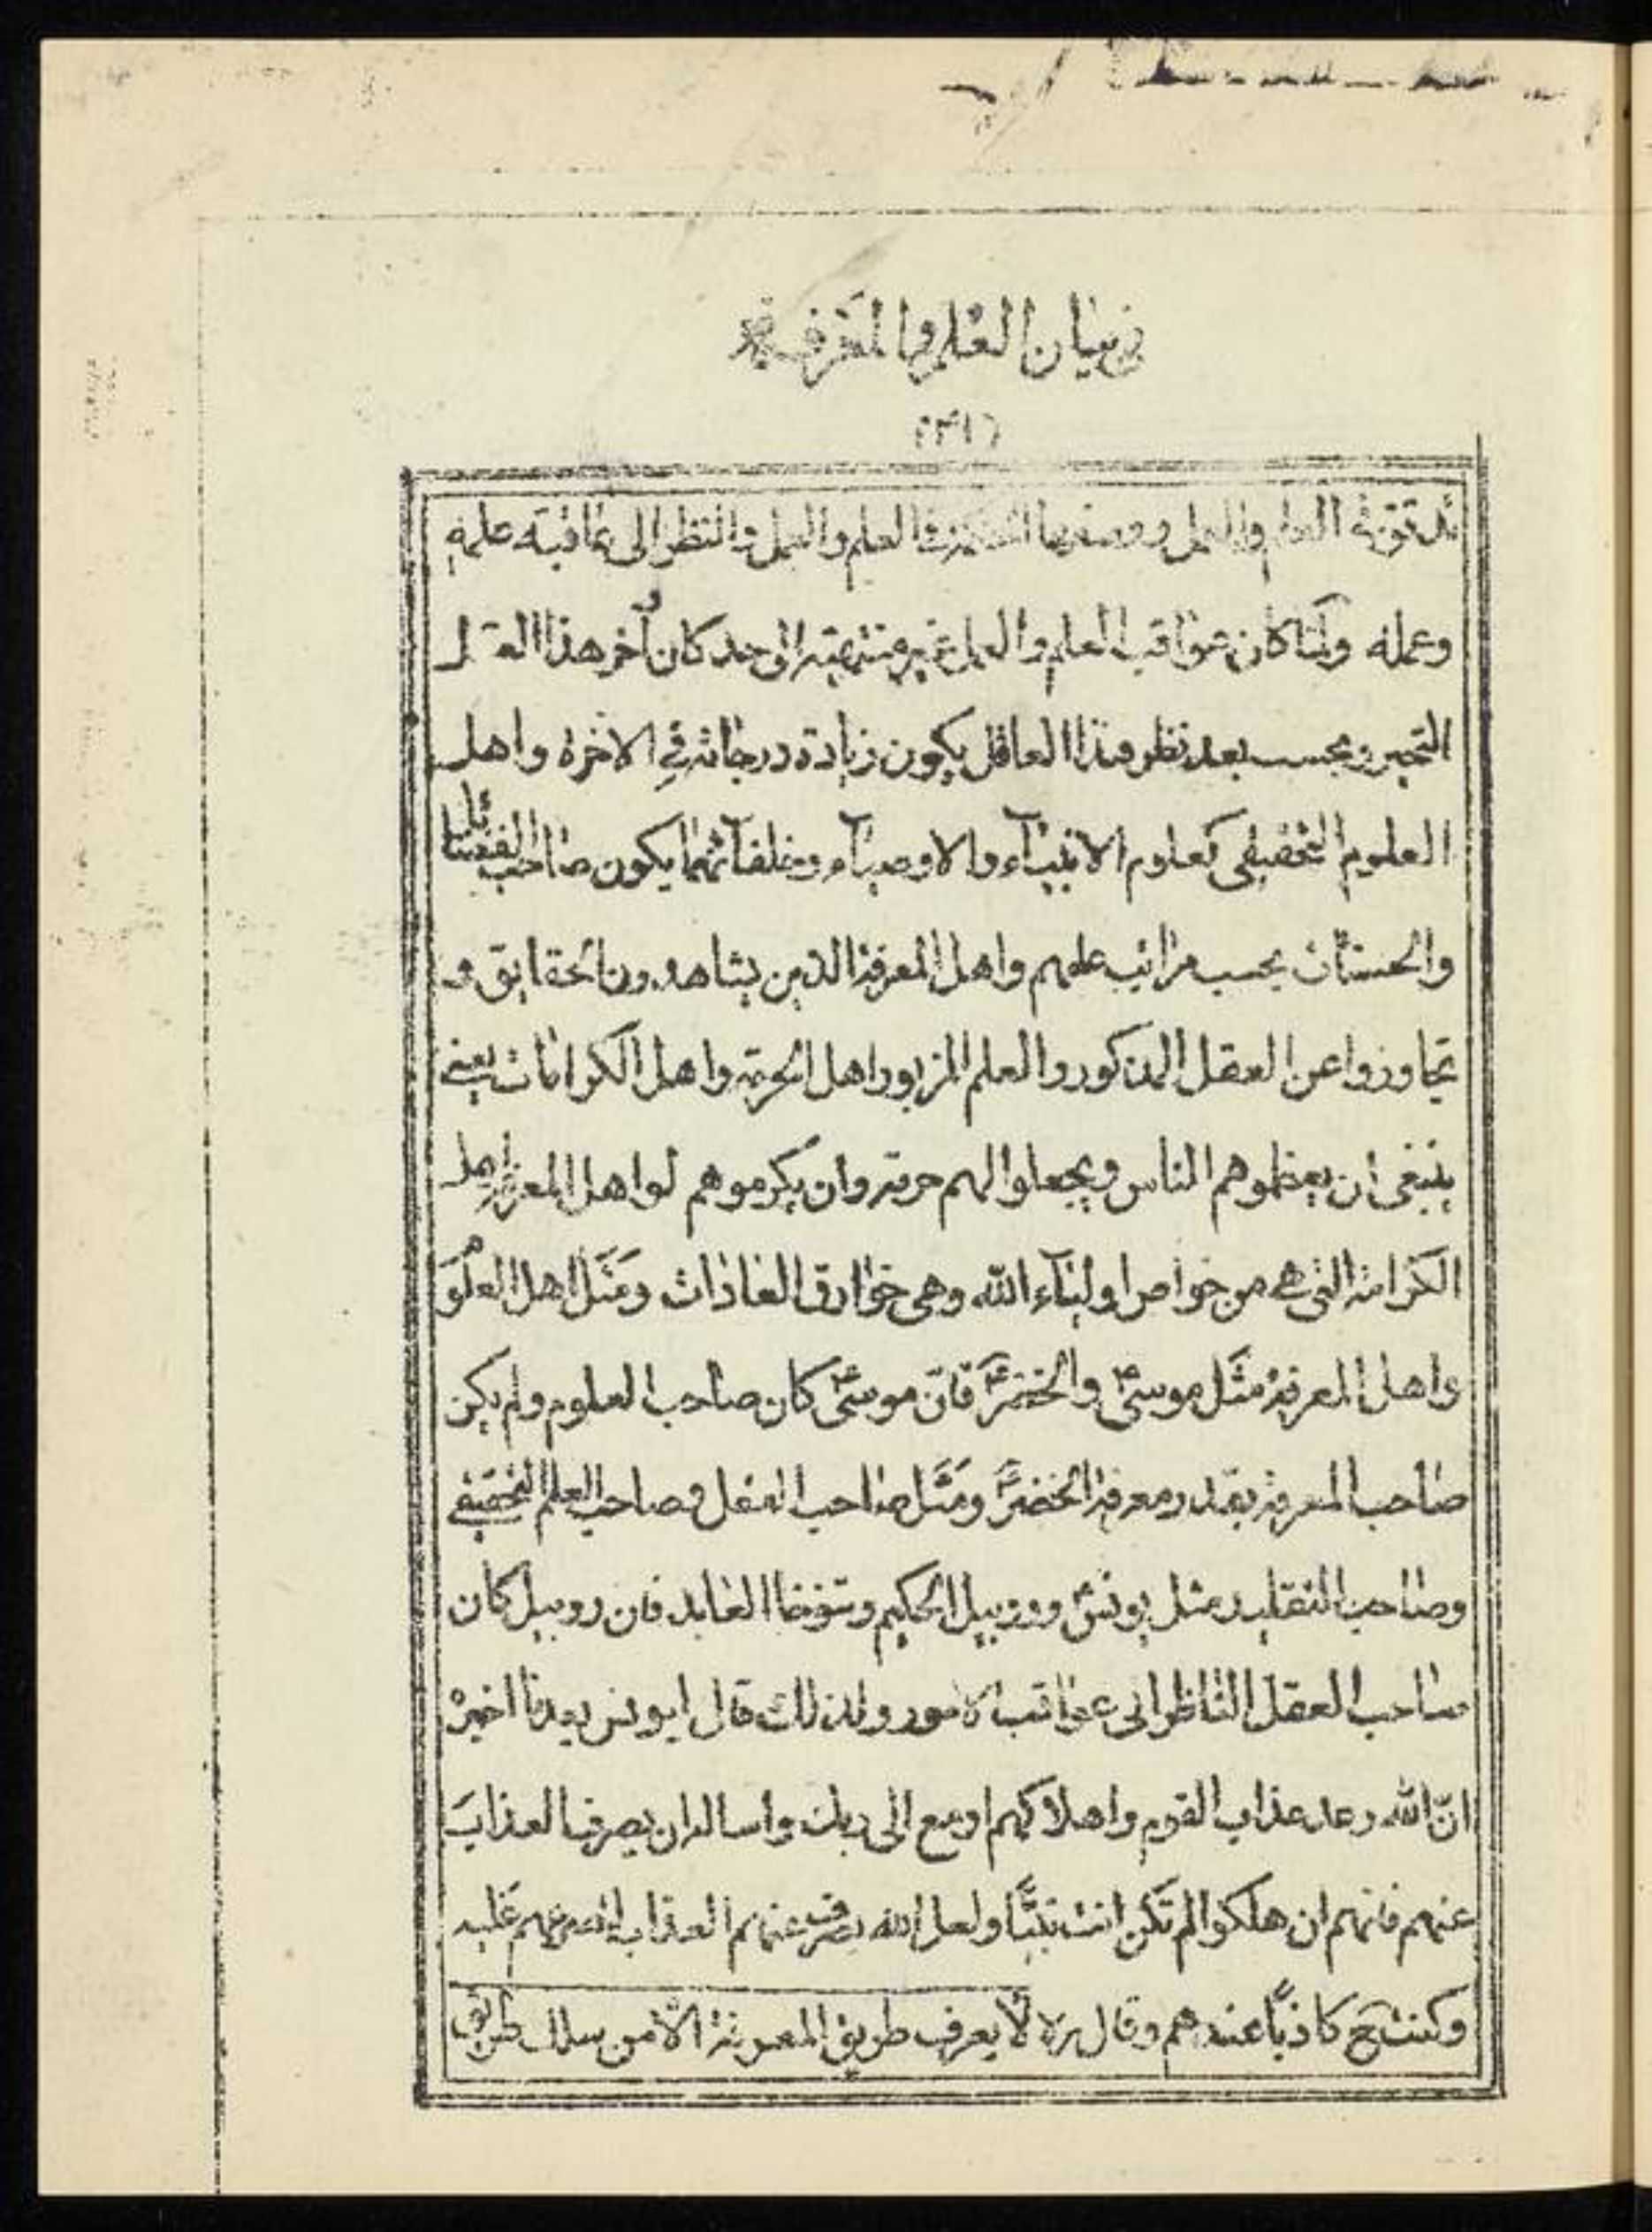 في بيان العلم والمعرفة
العلم والعمل والعلم والعمل والنظر الى عاقبة علمه
وعمله ولمّا كان عواقب العلم والعمل غير منتهية الى حد كان آخر هذا العقل
التحير وبحسب بعد نظر هذا العاقل يكون زيادة درجاته في الاخرة واهل
العلوم التحقيقى كعلوم الانبيآء والاوصيآء وخلفآئهما يكون صاحب الفضائل
والحسنات بحسب مراتب علمهم واهل المعرفة الذين يشاهدون الحقايق و
تجاوزوا عن العقل المذكور والعلم المزبور اهل الحرمة واهل الكرامات يعنى
ينبغى ان يعظموهم الناس ويجعلوا لهم حرمة وان يكرموهم لو اهل المعرفة اهل
الكرامة التى هى من خواص اوليآء الله وهى خوارق العادات ومَثَل اهل العلوم
واهل المعرفة مَثَل موسىٰؑ والخضرؑ فانّ موسىٰؑ كان صاحب العلوم ولم يكن
صاحب المعرفة بقدر معرفة الخضرؑ ومَثَل صاحب العقل وصاحب العلم التحقيقى
وصاحب التقليد مثل يونسؑ وروبيل الحكيم وتنوخا العابد فان روبيل كان
صاحب العقل الناظر الى عواقب الامور ولذلك قال ليونس بعد ما اخبره
انّ الله وعد عذاب القوم واهلاكهم ارجع الى ربك واسأله ان يصرف العذابَ
عنهم فانهم ان هلكوا لم تكن انت نبيًّا ولعل الله يصرف عنهم العذاب
وكنت ح كاذبًا عندهم وقال ره لا يعرف طريق المعرفة الّا من سلك طريق